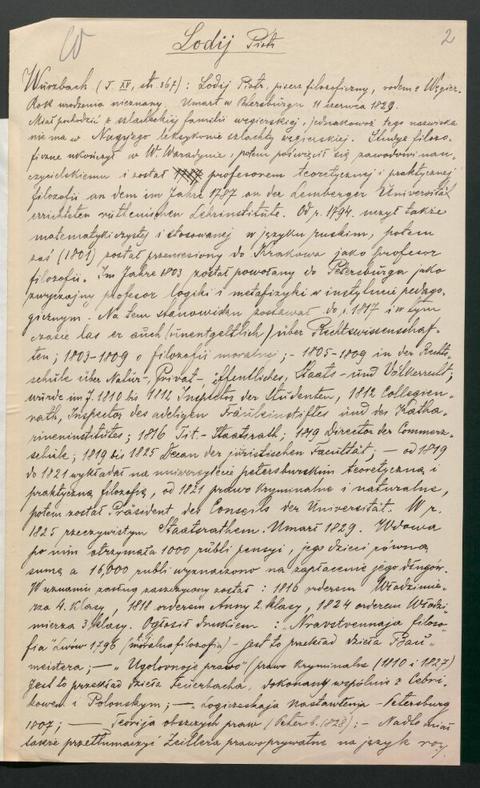 W
2
Lodij Piotr
Wurzbach (T. XV, str. 367): Lodij Piotr, pisarz filozoficzny, rodem z Węgier.
Rok urodzenia nieznany. Umarł w Petersburgu 11 czerwca 1829.
Miał pochodzić z szlacheckiej familii węgierskiej, jednakowoż tego nazwiska
nie ma w Nagyego leksykonie szlachty węgierskiej. Studya filozo-
ficzne ukończył w W. Waradynie, potem poświęcił się zawodowi nau-
czycielskiemu i został profesorem teoretycznej i praktycznej
filozofii an dem im Jahre 1787 an der Lemberger Universität
errichteten ruthenischen Lehrinstitute. Od r. 1794 uczył także
matematyki czystej i stosowanej w języku ruskim, potem
zaś (1801) został przeniesiony do Krakowa jako profesor
filozofii. Im Jahre 1803 został powołany do Petersburga jako
zwyczajny profesor logiki i metafizyki w instytucie pedago-
gicznym. Na tem stanowisku postawał do r. 1817 i w tym
czasie las er auch (unentgeltlich) über Rechtswissenschaf-
ten; 1803-1809 o filozofii moralnej; - 1805-1809 in der Rechts-
schule über Natur-, Privat-, öffentliches, Staats- und Völkerrecht;
wurde im J. 1810 bis 1811 Inspector der Studenten, 1812 Collegien-
rath, Inspector des adeligen Fräuleinstiftes und des Katha-
rineninstitutes; 1816 Tit.- Staatsrath. 1819 Director der Commerz-
schule; 1819 bis 1825 Decan der juristischen Facultät; - od 1819
do 1821 wykładał na uniwersytecie petersburskim teoretyczną i
praktyczną filozofię, od 1821 prawo kryminalne i naturalne,
potem został Präsident des Conseils der Universität. W r.
1825 rzeczywistym Staatsrathem. Umarł 1829. Wdowa
po nim otrzymała 1000 rubli pensyi, jego dzieci równą
sumę a 16,000 rubli wyznaczono na zapłacenie jego długów.
W uznaniu zasług zaszczycony został: 1810 orderem Włodzimie-
rza 4. klasy, 1818 orderem Anny 2. klasy, 1824 orderem Włodzi-
mierza 3. klasy. Ogłosił drukiem: "Nravstvennaja filozo-
fia" Lwów 1790 (moralna filozofia) - jest to przekład dzieła Bau-
meistera; — "Ugolovnoje prawo" (prawo kryminalne (1810 i 1827)
jest to przekład dzieła Feuerbacha, dokonany wspólnie z Cebri-
kowem i Polonskym; —. Logiczeskaja nastawlenia - Petersburg
1807; — Teorija obszczych praw (Petersb. 1828); - Nadto miał
także przetłumaczyć Zeillera prawo prywatne na język ros.